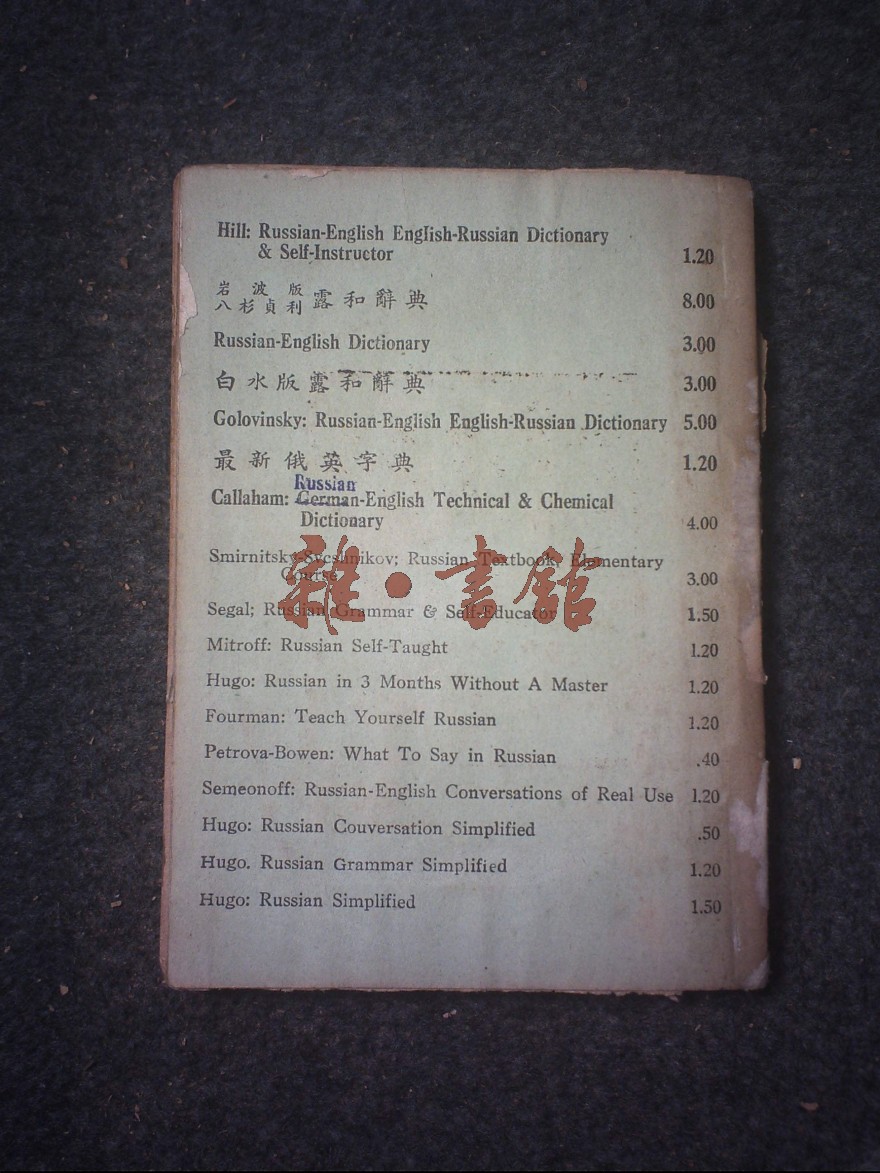 Hill: Russian-English English-Russian Dictionary
& Self-Instructor 1.20
岩波版
八杉貞利 露和辭典 8.00
Russian-English Dictionary 3.00
白水版露和辭典 3.00
Golovinsky: Russian-English English-Russian Dictionary 5.00
最新俄英字典 1.20
Russian
Callaham: German-English Technical & Chemical
Dictionary 4.00
Smirnitsky-Svesnnikov; Russian Textbook, Elementary
Course 3.00
Segal; Russian Grammar & Self-Educator 1.50
Mitroff: Russian Self-Taught 1.20
Hugo: Russian in 3 Months Without A Master 1.20
Fourman: Teach Yourself Russian 1.20
Petrova-Bowen: What To Say in Russian .40
Semeonoff: Russian-English Conversations of Real Use 1.20
Hugo: Russian Couversation Simplified .50
Hugo. Russian Grammar Simplified 1.20
Hugo: Russian Simplified 1.50
雜·書館